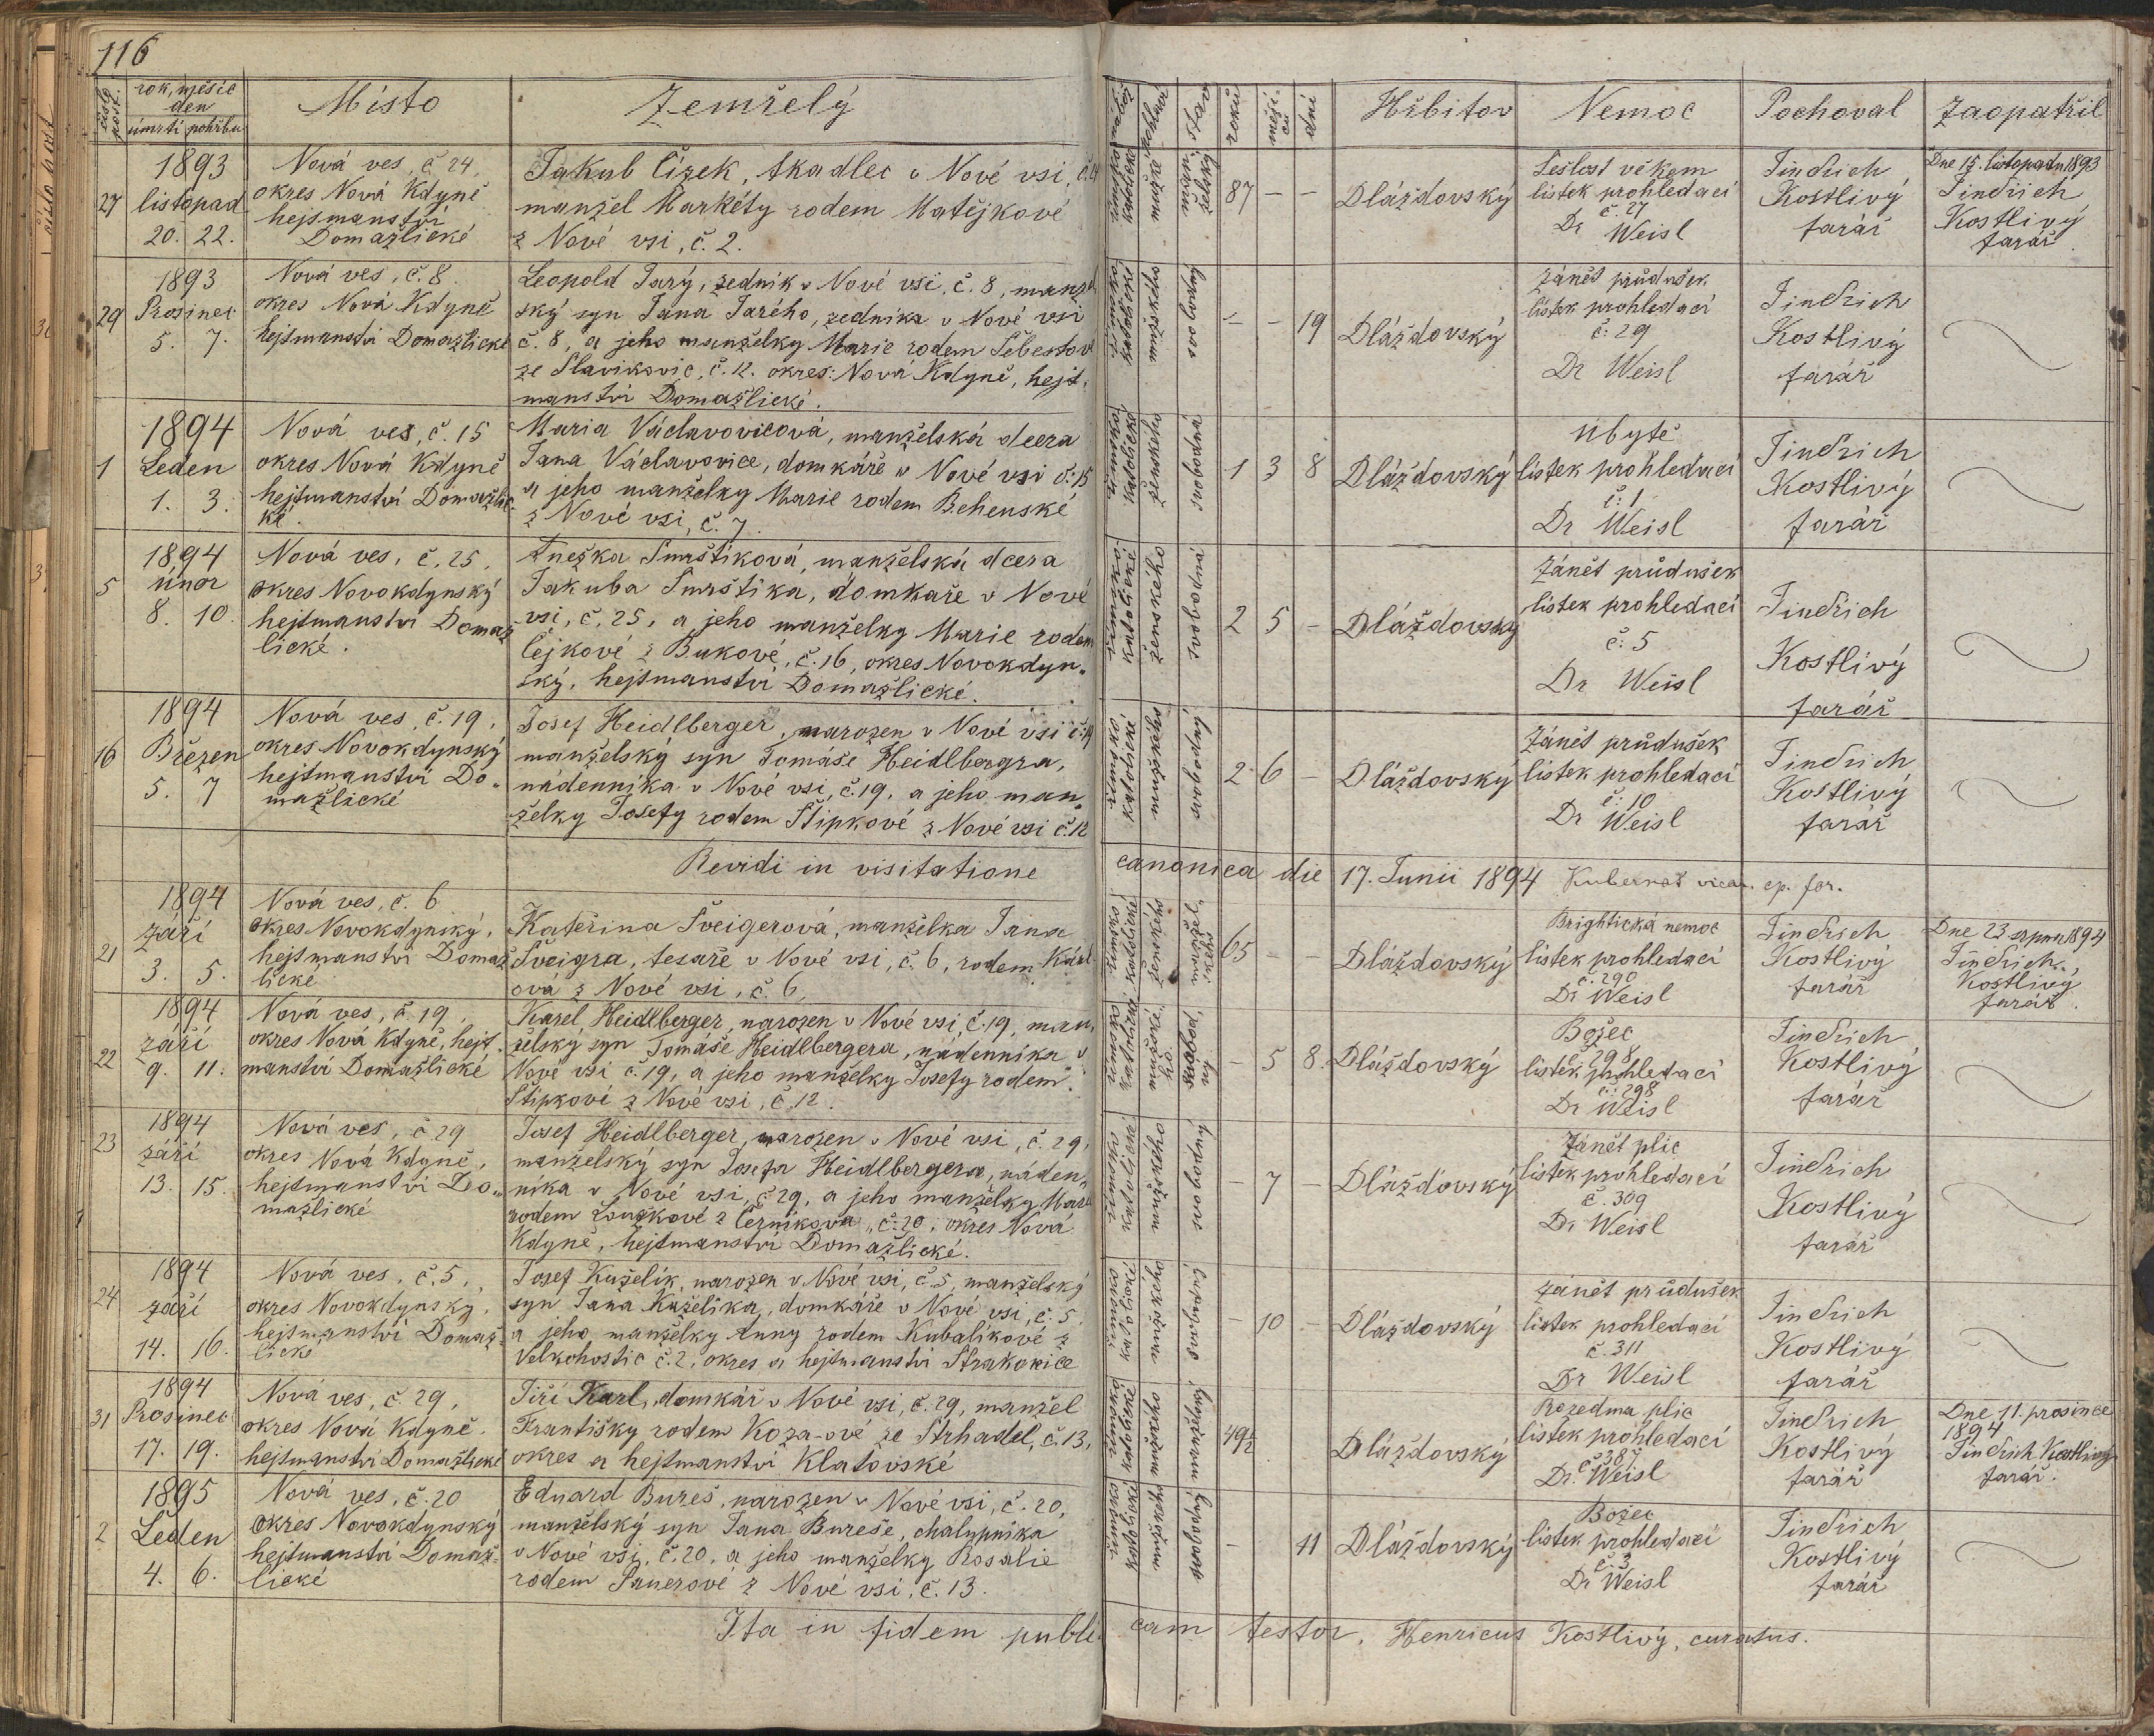 116
číslo post.
rok, měsíc
den
úmrtí pohřbu
Místo
Zemřelý
náboženství
pohlaví
stav
roků
měsíců
dní
Hřbitov
Nemoc
Pochoval
Zaopatřil
27
1893
listopad
20. 22.
Nová ves, č. 24,
okres Nová Kdyně
hejtmanství
Domažlické
Jakub Čížek, tkadlec v Nové vsi, č. 24
manžel Markéty rodem Matějkové
z Nové vsi, č. 2.
katolické
mužské
87 — —
Dláždovský
Sešlost věkem
lístek prohledací
č. 27
Dr Weisl
Jindřich
Kostlivý
farář
Dne 15. listopadu 1893
Jindřich
Kostlivý
farář.
29
1893
Prosinec
5. 7.
Nová ves, č. 8.
okres Nová Kdyně
hejtmanství Domažlické
Leopold Jarý, zedník v Nové vsi, č. 8, manžel
ský syn Jana Jarého, zedníka v Nové vsi
č. 8, a jeho manželky Marie rodem Šebestové
ze Slavikovic, č. 12. okres: Nová Kdyně, hejt.
manství Domažlické.
katolické
mužského
svobodný
— — 19
Dláždovský
Zánět průdušek
lístek prohledací
č: 29
Dr Weisl
Jindřich
Kostlivý
farář
1
1894
Leden
1. 3.
Nová ves, č. 15
okres Nová Kdyně
hejtmanství Domažlic-
ké.
Maria Václavovicová, manželská dcera
Jana Václavovice, domkáře v Nové vsi č. 15
a jeho manželky Marie rodem Behenské
z Nové vsi, č. 7.
katolické
ženského
svobodná
1 3 8
Dláždovský
Úbytě
lístek prohledací
č: 1
Dr Weisl
Jindřich
Kostlivý
farář
5
1894
únor
8. 10.
Nová ves, č. 25,
okres Novokdynský
hejtmanství Domaž
lické.
Anežka Smrštíková, manželská dcera
Jakuba Smrštíka, domkaře v Nové
vsi, č. 25, a jeho manželky Marie rodem
Čejkové z Bukové, č. 16, okres Novokdyn-
ský, hejtmanství Domažlické.
katolické
ženského
svobodná
2 5 —
Dláždovský
Zánět průdušek
lístek prohledací
č: 5
Dr Weisl
Jindřich
Kostlivý
farář
16
1894
Březen
5. 7
Nová ves, č. 19.
okres Novokdynský
hejtmanství Do-
mažlické
Josef Heidlberger, narozen v Nové vsi č. 19
manželský syn Tomáše Heidlbergra,
nádenníka v Nové vsi, č. 19, a jeho man-
želky Josefy rodem Štipkové z Nové vsi č. 12
katolické
mužského
svobodný
2 6 —
Dláždovský
Zánět průdušek
lístek prohledací
č: 10
Dr Weisl
Jindřich
Kostlivý
farář
Revidi in visitatione canonica die 17. Junii 1894 vicar. ep. for.
21
1894
září
3. 5.
Nová ves, č. 6
okres Novokdynský,
hejtmanství Domaž
lické
Kateřina Šveigerová, manželka Jana
Šveigra, tesaře v Nové vsi, č. 6, rodem
ová z Nové vsi, č. 6.
katolické
ženského
65 — —
Dláždovský
Brightická nemoc
lístek prohledací
č. 290
Dr Weisl
Jindřich
Kostlivý
farář
Dne 23 srpna 1894
Jindřich
Kostlivý
farář.
22
1894
září
9. 11.
Nová ves, č. 19.
okres Nová Kdyně, hejt.
manství Domažlické
Karel Heidlberger, narozen v Nové vsi, č. 19, man-
želský syn Tomáše Heidlbergera, nádenníka v
Nové vsi č. 19, a jeho manželky Josefy rodem
Štipkové z Nové vsi, č. 12.
mužské-
ho
svobod-
ný
— 5 8
Dláždovský
Božec
č. 298
lístek prohledací
č: 298
Dr Weisl
Jindřich
Kostlivý
farář
23
1894
září
13. 15.
Nová ves, č. 29
okres Nová Kdyně,
hejtmanství Do-
mažlické
Josef Heidlberger, narozen v Nové vsi, č. 29,
manželský syn Josefa Heidlbergera, náden-
níka v Nové vsi, č. 29, a jeho manželky Marie
rodem Louzkové z Čezníkova, č. 20, okres Nová
Kdyně, hejtmanství Domažlické.
katolické
mužského
svobodný
— 7 —
Dláždovský
Zánět plic
lístek prohledací
č. 309
Dr Weisl
Jindřich
Kostlivý
farář
24
1894
září
14. 16.
Nová ves, č. 5,
okres Novokdynský,
hejtmanství Domaž-
lické
Josef Kuželík, narozen v Nové vsi, č. 5, manželský
syn Jana Kuželíka, domkáře v Nové vsi, č. 5,
a jeho manželky Anny rodem Kubalíkové z
Velkohostic č. 2, okres a hejtmanství Strakonice
katolické
mužského
svobodný
— 10 —
Dláždovský
Zánět průdušek
lístek prohledací
č. 311
Dr Weisl
Jindřich
Kostlivý
farář
31
1894
Prosinec
17. 19.
Nová ves, č. 29,
okres Nová Kdyně.
hejtmanství Domažlické
Jiří Karl, domkář v Nové vsi, č. 29, manžel
Františky rodem Koza-ové ze Strhadel, č. 13,
okres a hejtmanství Klatovské
katolické
mužského
49½
Dláždovský
Rozedma plic
lístek prohledací
č. 387
Dr. Weisl
Jindřich
Kostlivý
farář
Dne 11. prosince
1894
Jindřich Kostlivý
farář.
2
1895
Leden
4. 6.
Nová ves, č. 20
okres Novokdynský
hejtmanství Domaž-
lické
Eduard Bureš, narozen v Nové vsi, č. 20,
manželský syn Jana Bureše, chalupníka
v Nové vsi, č. 20, a jeho manželky Rosalie
rodem Pauerové z Nové vsi, č. 13.
katolické
mužského
svobodný
— 11
Dláždovský
Božec
lístek prohledací
č. 3
Dr Weisl
Jindřich
Kostlivý
farář
Ita in fidem publicam testor, Henricus Kostlivý, curatus.